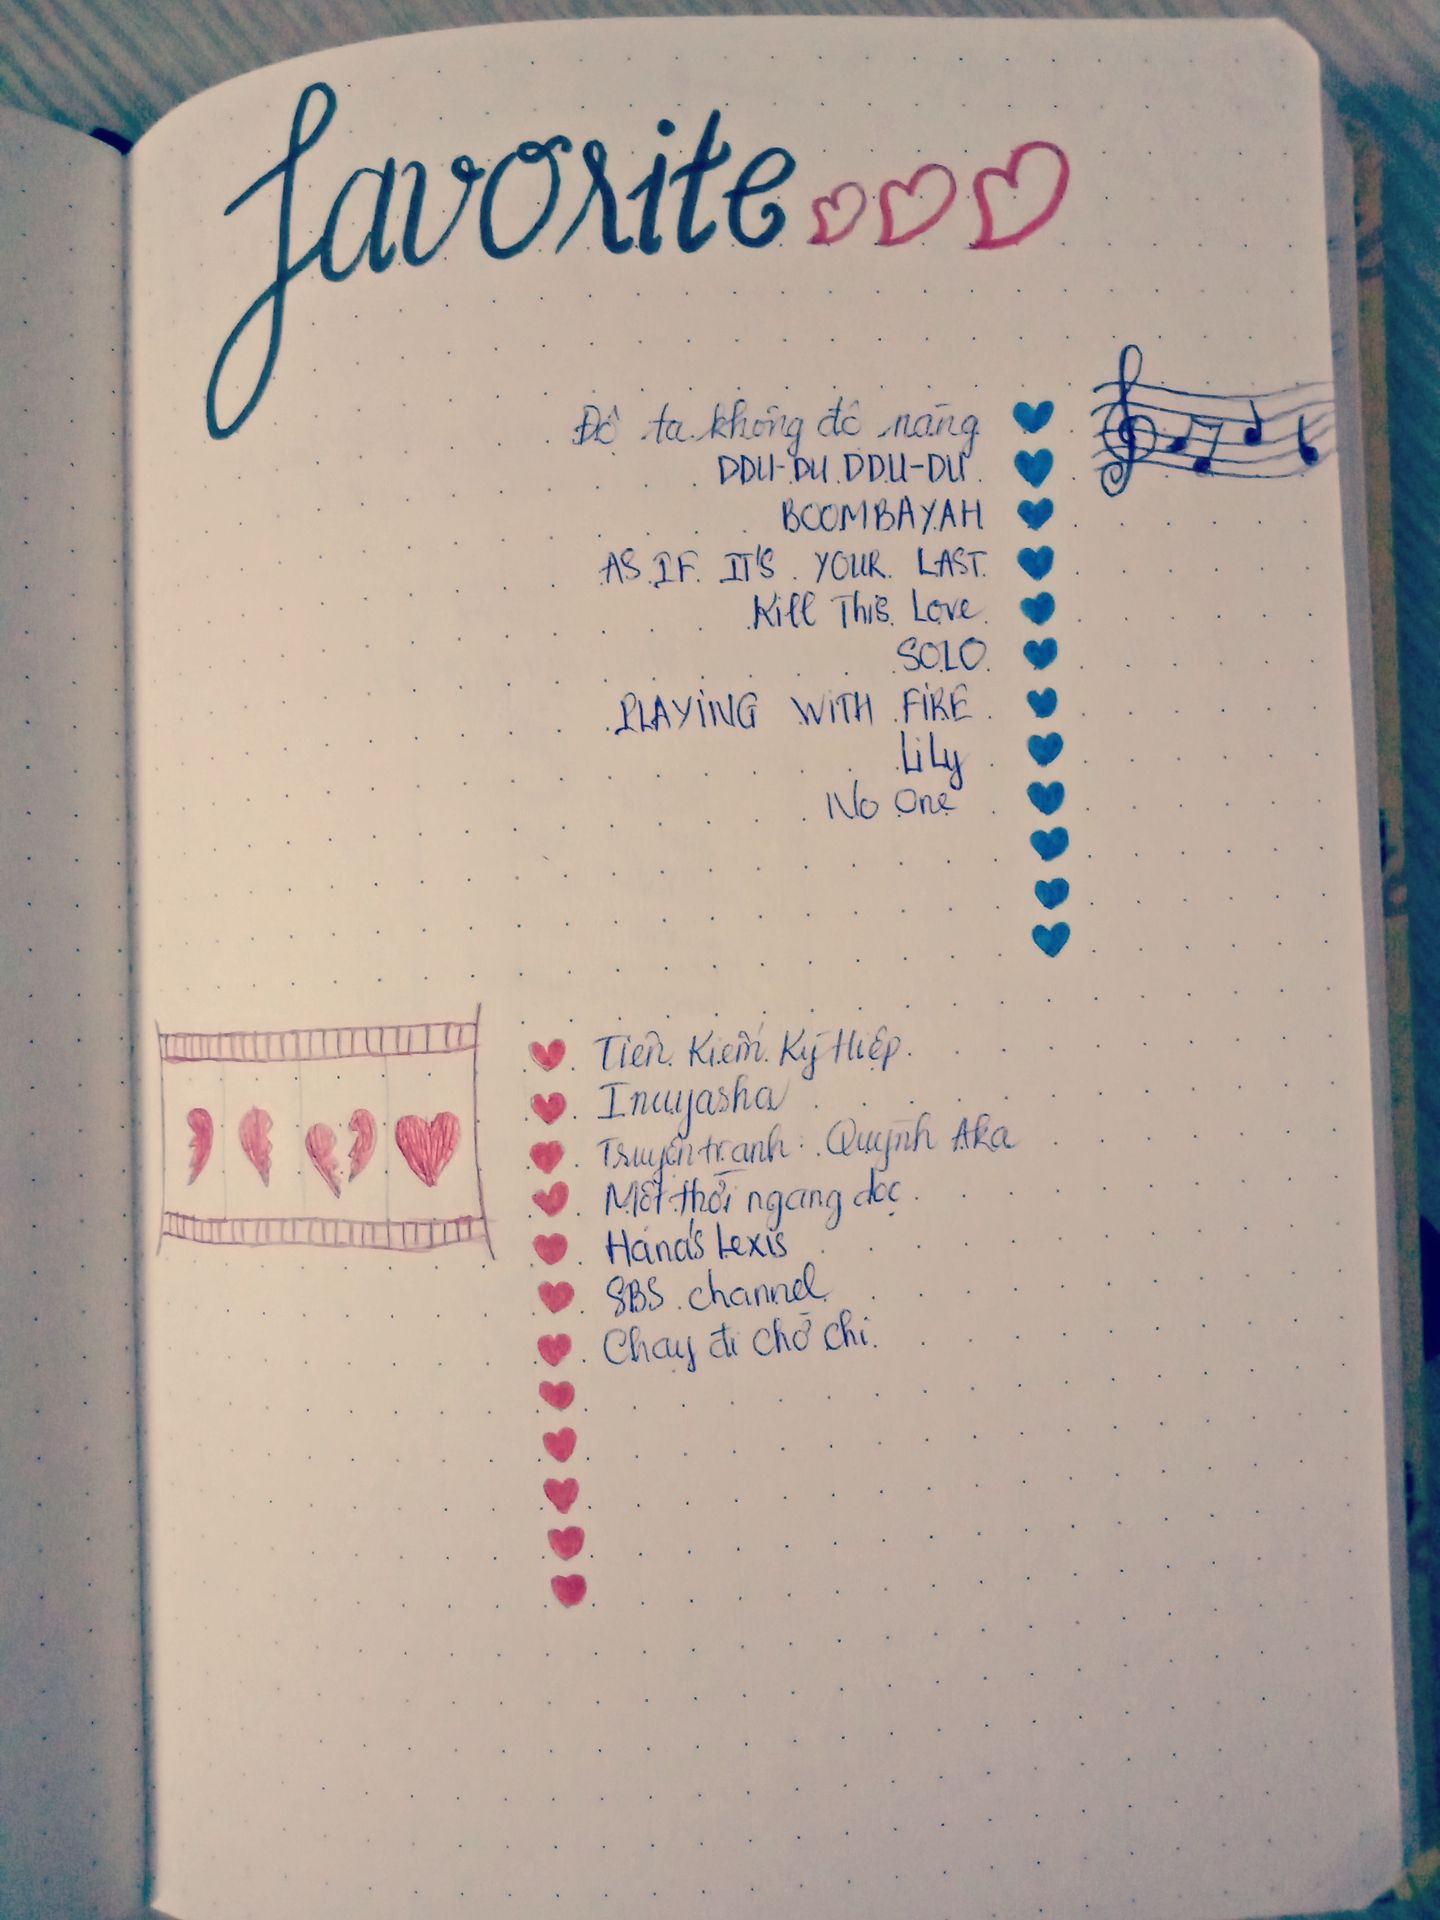 favorite
Độ ta không độ nàng
DDU-DU DDU-DU
BOOMBAYAH
AS IF IT'S YOUR LAST
Kill This Love
SOLO
PLAYING WITH FIRE
Lily
No One
Tiên Kiếm Kỳ Hiệp
Inuyasha
Truyện tranh: Quỳnh Aka
Một thời ngang dọc
Hana's Lexis
SBS channel
Chạy đi chờ chi